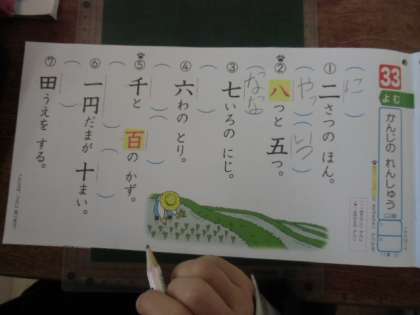 33
よむ
かんじの れんしゅう
① 二さつの ほん。
に
② 八つと 五つ。
やっ いつ
③ 七いろの にじ。
なな
④ 六わの とり。
⑤ 千と 百の かず。
⑥ 一円だまが 十まい。
⑦ 田うえを する。